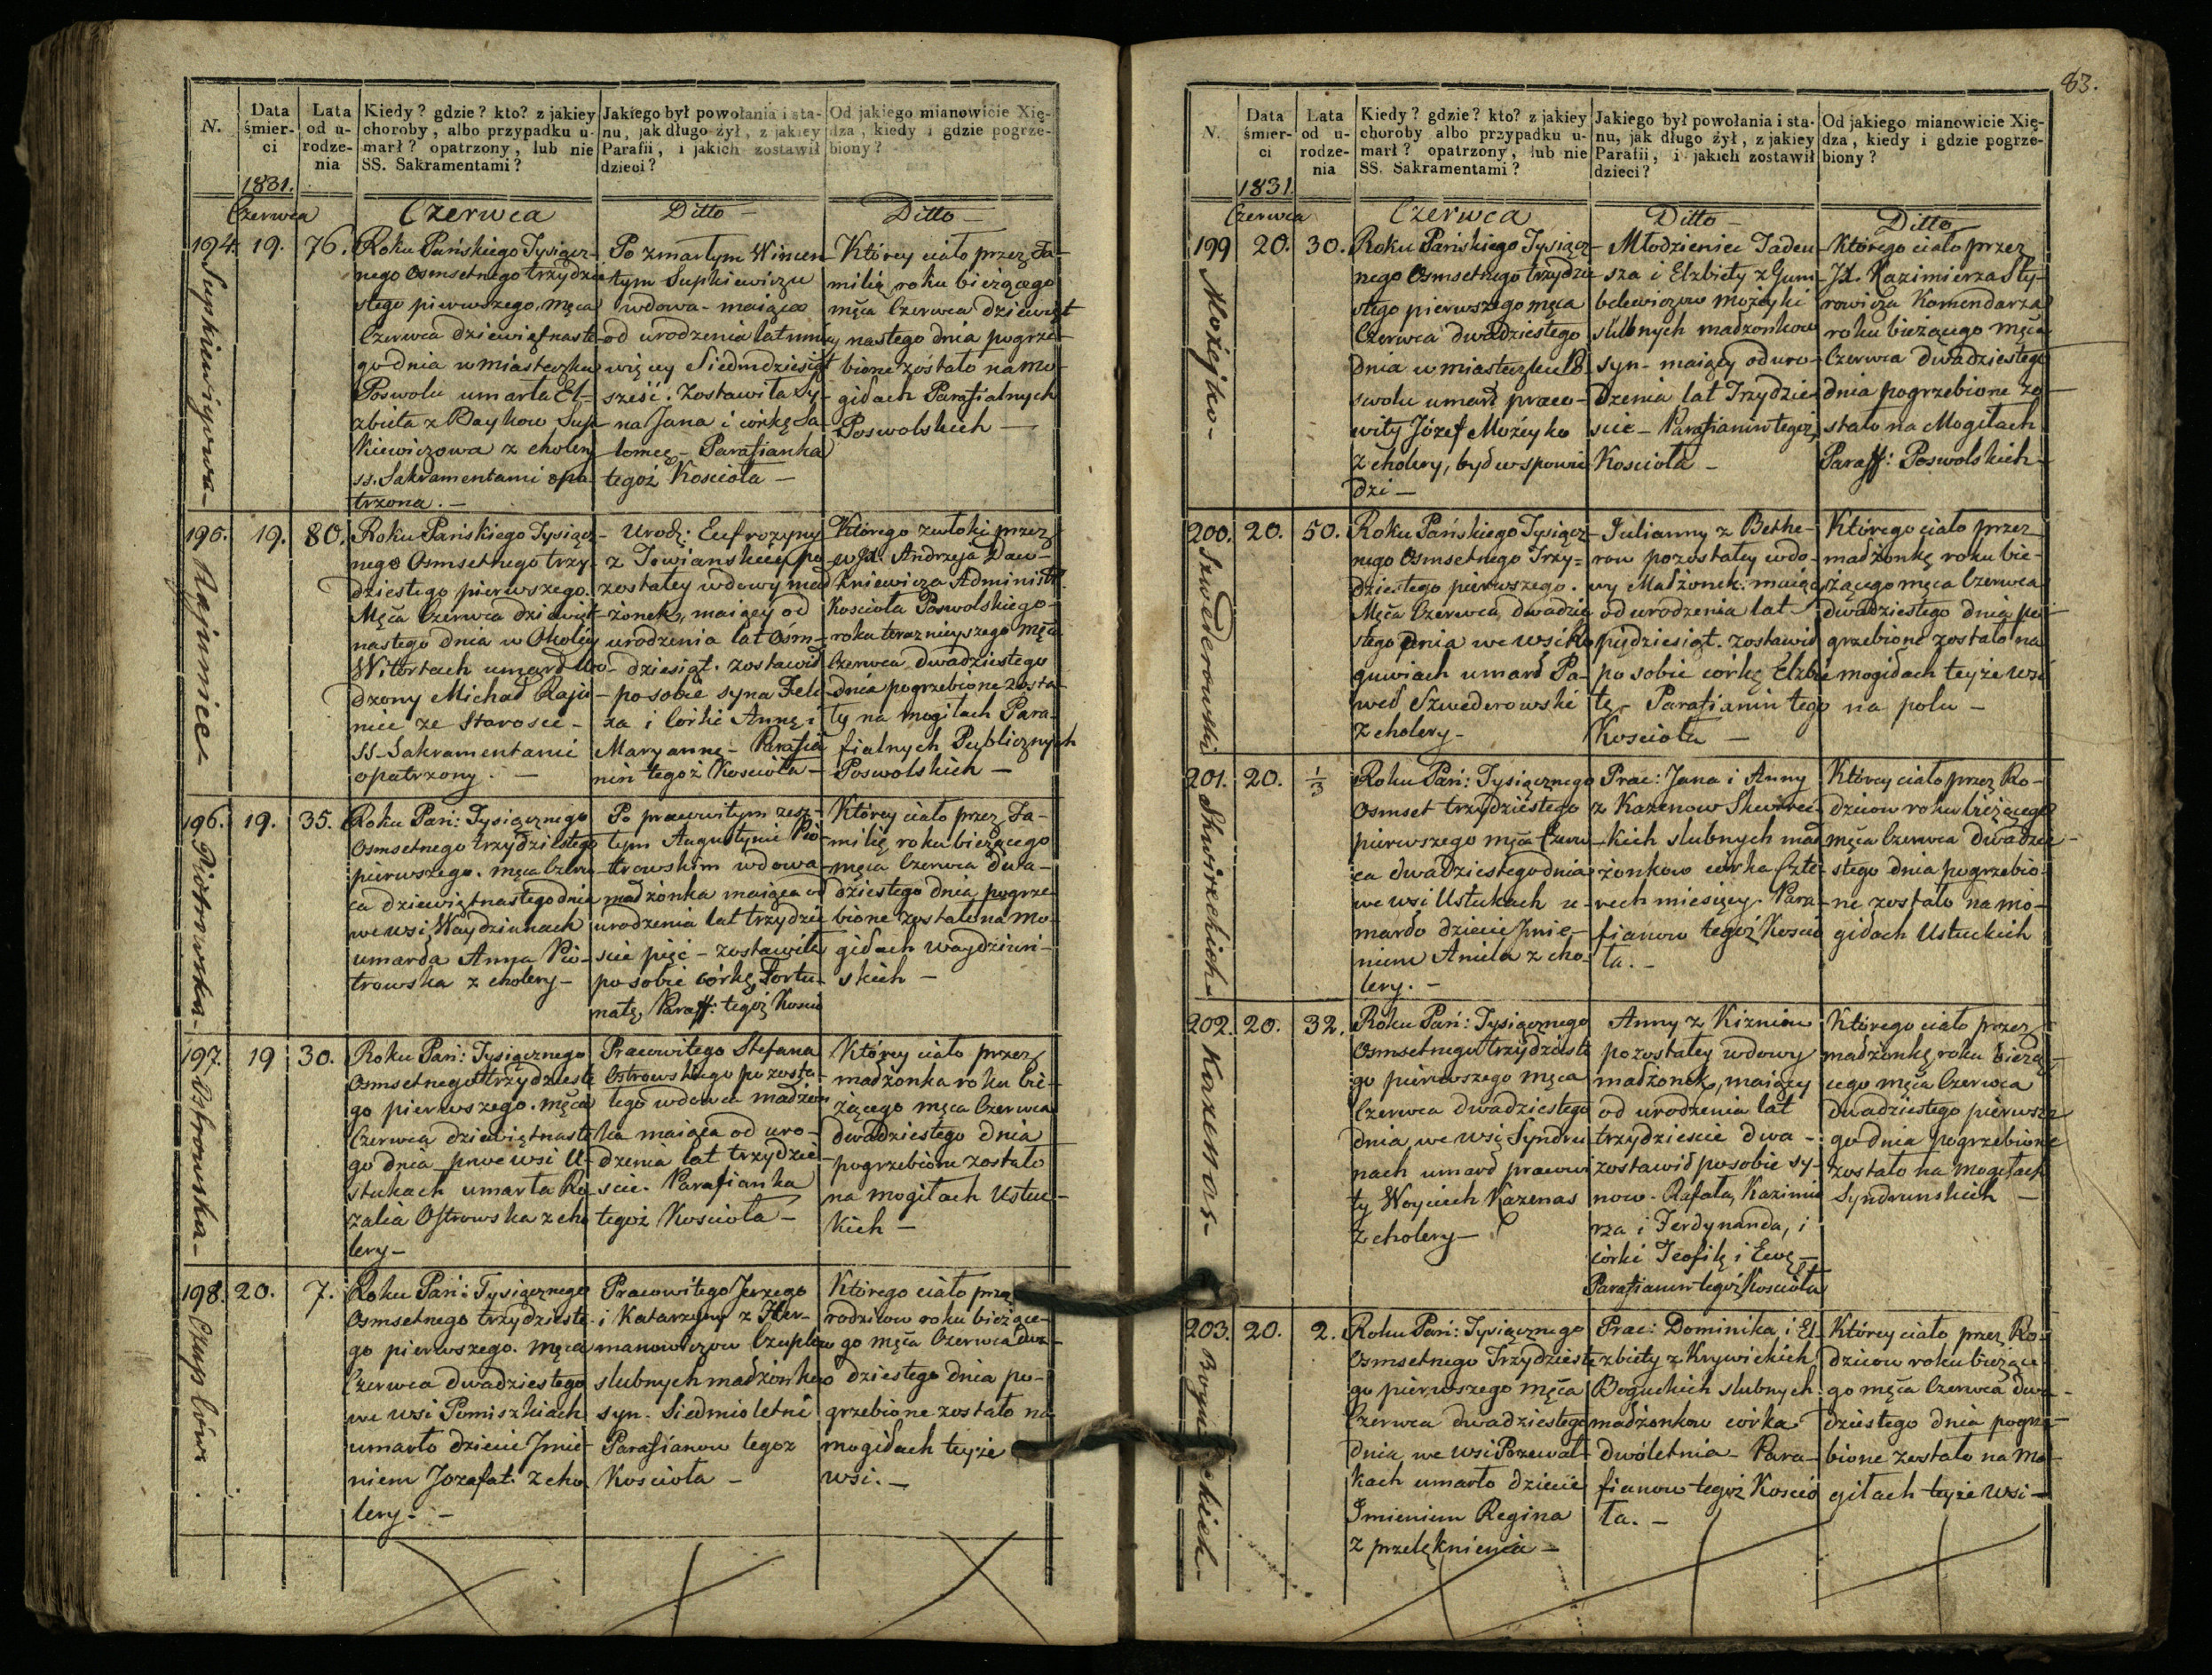 N.
Data śmierci
Lata od urodzenia
Kiedy? gdzie? kto? z jakiey
choroby, albo przypadku u-
marł? opatrzony, lub nie
SS. Sakramentami?
Jakiego był powołania i sta-
nu, jak długo żył, z jakiey
Parafii, i jakich zostawił
dzieci?
Od jakiego mianowicie Xię-
dza, kiedy i gdzie pogrze-
biony?
1831.
Czerwca
Czerwca
Ditto —
Ditto —
194. 19. 76.
Supkiewiczowa —
Roku Pańskiego Tysiącz-
nego Osmsetnego trzydzie
stego pierwszego. męca
Czerwca dziewiętnaste
go dnia w miasteczku
Poswolu umarła El-
zbieta z Baykow Sup
kiewiczowa z cholery
ss. Sakramentami opa
trzona. —
Po zmarłym Wincen
tym Supkiewiczu
wdowa - maiąca
od urodzenia lat mniey
więcey Siedmdziesiąt
sześć. Zostawiła Sy-
na Jana i córkę Sa-
lomeę - Parafianka
tegoż Kosciola —
Którey ciało przez Fa-
milią roku bieżącego
męca Czerwca dziewięt
nastego dnia pogrze
bione zostało na mo-
giłach Parafialnych
Poswolskich —
195. 19. 80.
Rajuniec —
Roku Pańskiego Tysiącz
nego Osmsetnego trzy-
dziestego pierwszego.
Męca Czerwca dziewięt
nastego dnia w Okolicy
Witortach umarł Uro-
dzony Michał Raju
niec ze starosci -
SS. Sakramentami
opatrzony. —
Urodz: Eufrozyny
z Towianskiey po
zostałey wdowy mał
żonek, maiący od
urodzenia lat Ośm-
dziesiąt. zostawił
po sobie syna Feli
xa i Corki Annę i
Maryannę - Parafia
nin tegoż Kosciola —
Którego zwłoki przez
WJX. Andrzeja Daw-
kniewicza Administr.
Kosciola Poswolskiego
roku teraznieyszego Męca
Czerwca dwadziestego
dnia pogrzebione zosta
ły na mogiłach Para-
fialnych Publicznych
Poswolskich —
196. 19. 35.
Piotrowska —
Roku Pań: Tysiącznego
Osmsetnego trzydziestego
pierwszego. męca Czerw
ca dziewiętnastego dnia
we wsi Waydziunach
umarła Anna Pio-
trowska z cholery —
Po pracowitym zesz-
łym Augustynie Pio-
trowskim wdowa
małżonka maiąca od
urodzenia lat trzydzie
scie pięć - zostawiła
po sobie córkę Fortu-
natę, Paraff: tegoż Koscio
Którey ciało przez Fa-
milię roku bieżącego
męca Czerwca dwa-
dziestego dnia pogrze
bione zostało na mo-
giłach waydziuń-
skich —
197. 19 30.
Ostrowska —
Roku Pań: Tysiącznego
Osmsetnego trzydzieste
go pierwszego. męca
Czerwca dziewiętnaste
go dnia we wsi U-
stukach umarła Ro
zalia Ostrowska z cho
lery —
Pracowitego Stefana
Ostrowskiego pozosta-
łego wdowca małżon
ka maiąca od uro-
dzenia lat trzydzie-
scie. Parafianka
tegoż Kosciola —
Którey ciało przez
małżonka roku bie-
żącego męca Czerwca
dwadziestego dnia
pogrzebione zostało
na mogiłach Ustuc-
kich —
198. 20. 7.
Czuplów .
Roku Pań: Tysiącznego
Osmsetnego trzydzieste
go pierwszego. męca
Czerwca dwadziestego
we wsi Pomiszkiach
umarło dziecie Jmie-
niem Jozafat. z cho
lery. —
Pracowitego Jerzego
i Katarzyny z Her-
manowiczow Czuplow
slubnych małżonkow
syn. Siedmioletni
Parafianow tegoz
Kosciola —
Którego ciało przez
rodzicow roku bieżące-
go męca Czerwca dwa-
dziestego dnia po-
grzebione zostało na
mogiłach teyże
wsi. —
83.
N.
Data śmierci
Lata od urodzenia
Kiedy? gdzie? kto? z jakiey
choroby albo przypadku u-
marł? opatrzony, lub nie
SS. Sakramentami?
Jakiego był powołania i sta-
nu, jak długo żył, z jakiey
Parafii, i jakich zostawił
dzieci?
Od jakiego mianowicie Xię-
dza, kiedy i gdzie pogrze-
biony?
1831.
Czerwca
Czerwca
Ditto —
Ditto
199 20. 30.
Możejko —
Roku Pańskiego Tysiącz-
nego Osmsetnego trzydzie
stego pierwszego męca
Czerwca dwadziestego
dnia w miasteczku Po
swolu umarł praco-
wity Józef Możeyko
z cholery, był w spowie
dzi —
Młodzieniec Tadeu
sza i Elzbiety z Gum
belewiczow możeyki
slubnych małżonkow
syn - maiący od uro
dzenia lat Trzydzie
scie - Parafianin tegoż
Kosciola —
Którego ciało przez
JX. Kazimierza Sty-
rowicza Komendarza
roku bieżącego męca
Czerwca dwadziestego
dnia pogrzebione zo
stało na Mogiłach
Paraff: Poswolskich
200. 20. 50.
Szwederowski
Roku Pańskiego Tysiącz
nego Osmsetnego Trzy-
dziestego pierwszego.
Męca Czerwca, dwadzie
stego dnia we wsi Ro
guwiach umarł Pa-
weł Szwederowski
z cholery —
Julianny z Bethe-
row pozostałey wdo-
wy Małżonek: maiący
od urodzenia lat
pięćdziesiąt. zostawił
po sobie córkę Elzbie
tę - Parafianin tego
Kosciola —
Którego ciało przez
małżonkę roku bie-
żącego męca Czerwca
dwadziestego dnia po-
grzebione zostało na
mogiłach teyże wsi
na polu —
201. 20. 1/3
Skwireckich —
Roku Pań: Tysiącznego
Osmset trzydziestego
pierwszego męca Czerw
ca dwadziestego dnia
we wsi Ustukach u-
marło dziecie Jmie-
niem Aniela z cho-
lery. —
Prac: Jana i Anny
z Kazenow Skwirec-
kich slubnych mał
żonkow córka Czte-
rech miesięcy. Para-
fianow tegoż Koscio
ła. —
Którey ciało przez Ro-
dzicow roku bieżącego
męca Czerwca dwadzie-
stego dnia pogrzebio-
ne zostało na mo-
giłach Ustuckich
202. 20. 32.
Kazenas —
Roku Pań: Tysiącznego
Osmsetnego trzydzieste
go pierwszego męca
Czerwca dwadziestego
dnia, we wsi Syndru
nach umarł pracowi
ty Woyciech Kazenas
z cholery —
Anny z Kizniow
pozostałey wdowy
małżonek, maiący
od urodzenia lat
trzydziescie dwa -
zostawił po sobie sy-
now - Rafała, Kazimie
rza i Ferdynanda, i
córki Teofilę i Ewę —
Parafianin tegoż Kosciola
Którego ciało przez
małżonkę roku bieżą-
cego męca Czerwca
dwadziestego pierwsze
go dnia pogrzebione
zostało na mogiłach
Syndrunskich —
203. 20. 2.
Roku Pań: Tysiącznego
Osmsetnego Trzydzieste
go pierwszego męca
Czerwca dwadziestego
dnia we wsi Przewał-
kach umarło dziecie
Imieniem Regina
z przelęknienia —
Prac: Dominika i El-
zbiety z Krywickich
Boguckich slubnych
małżonkow córka
dwóletnia - Para-
fianow tegoż Koscio
ła. —
Którey ciało przez Ro-
dzicow roku bieżące-
go męca Czerwca dwa-
dziestego dnia pogrze-
bione zostało na mo-
giłach teyże wsi —